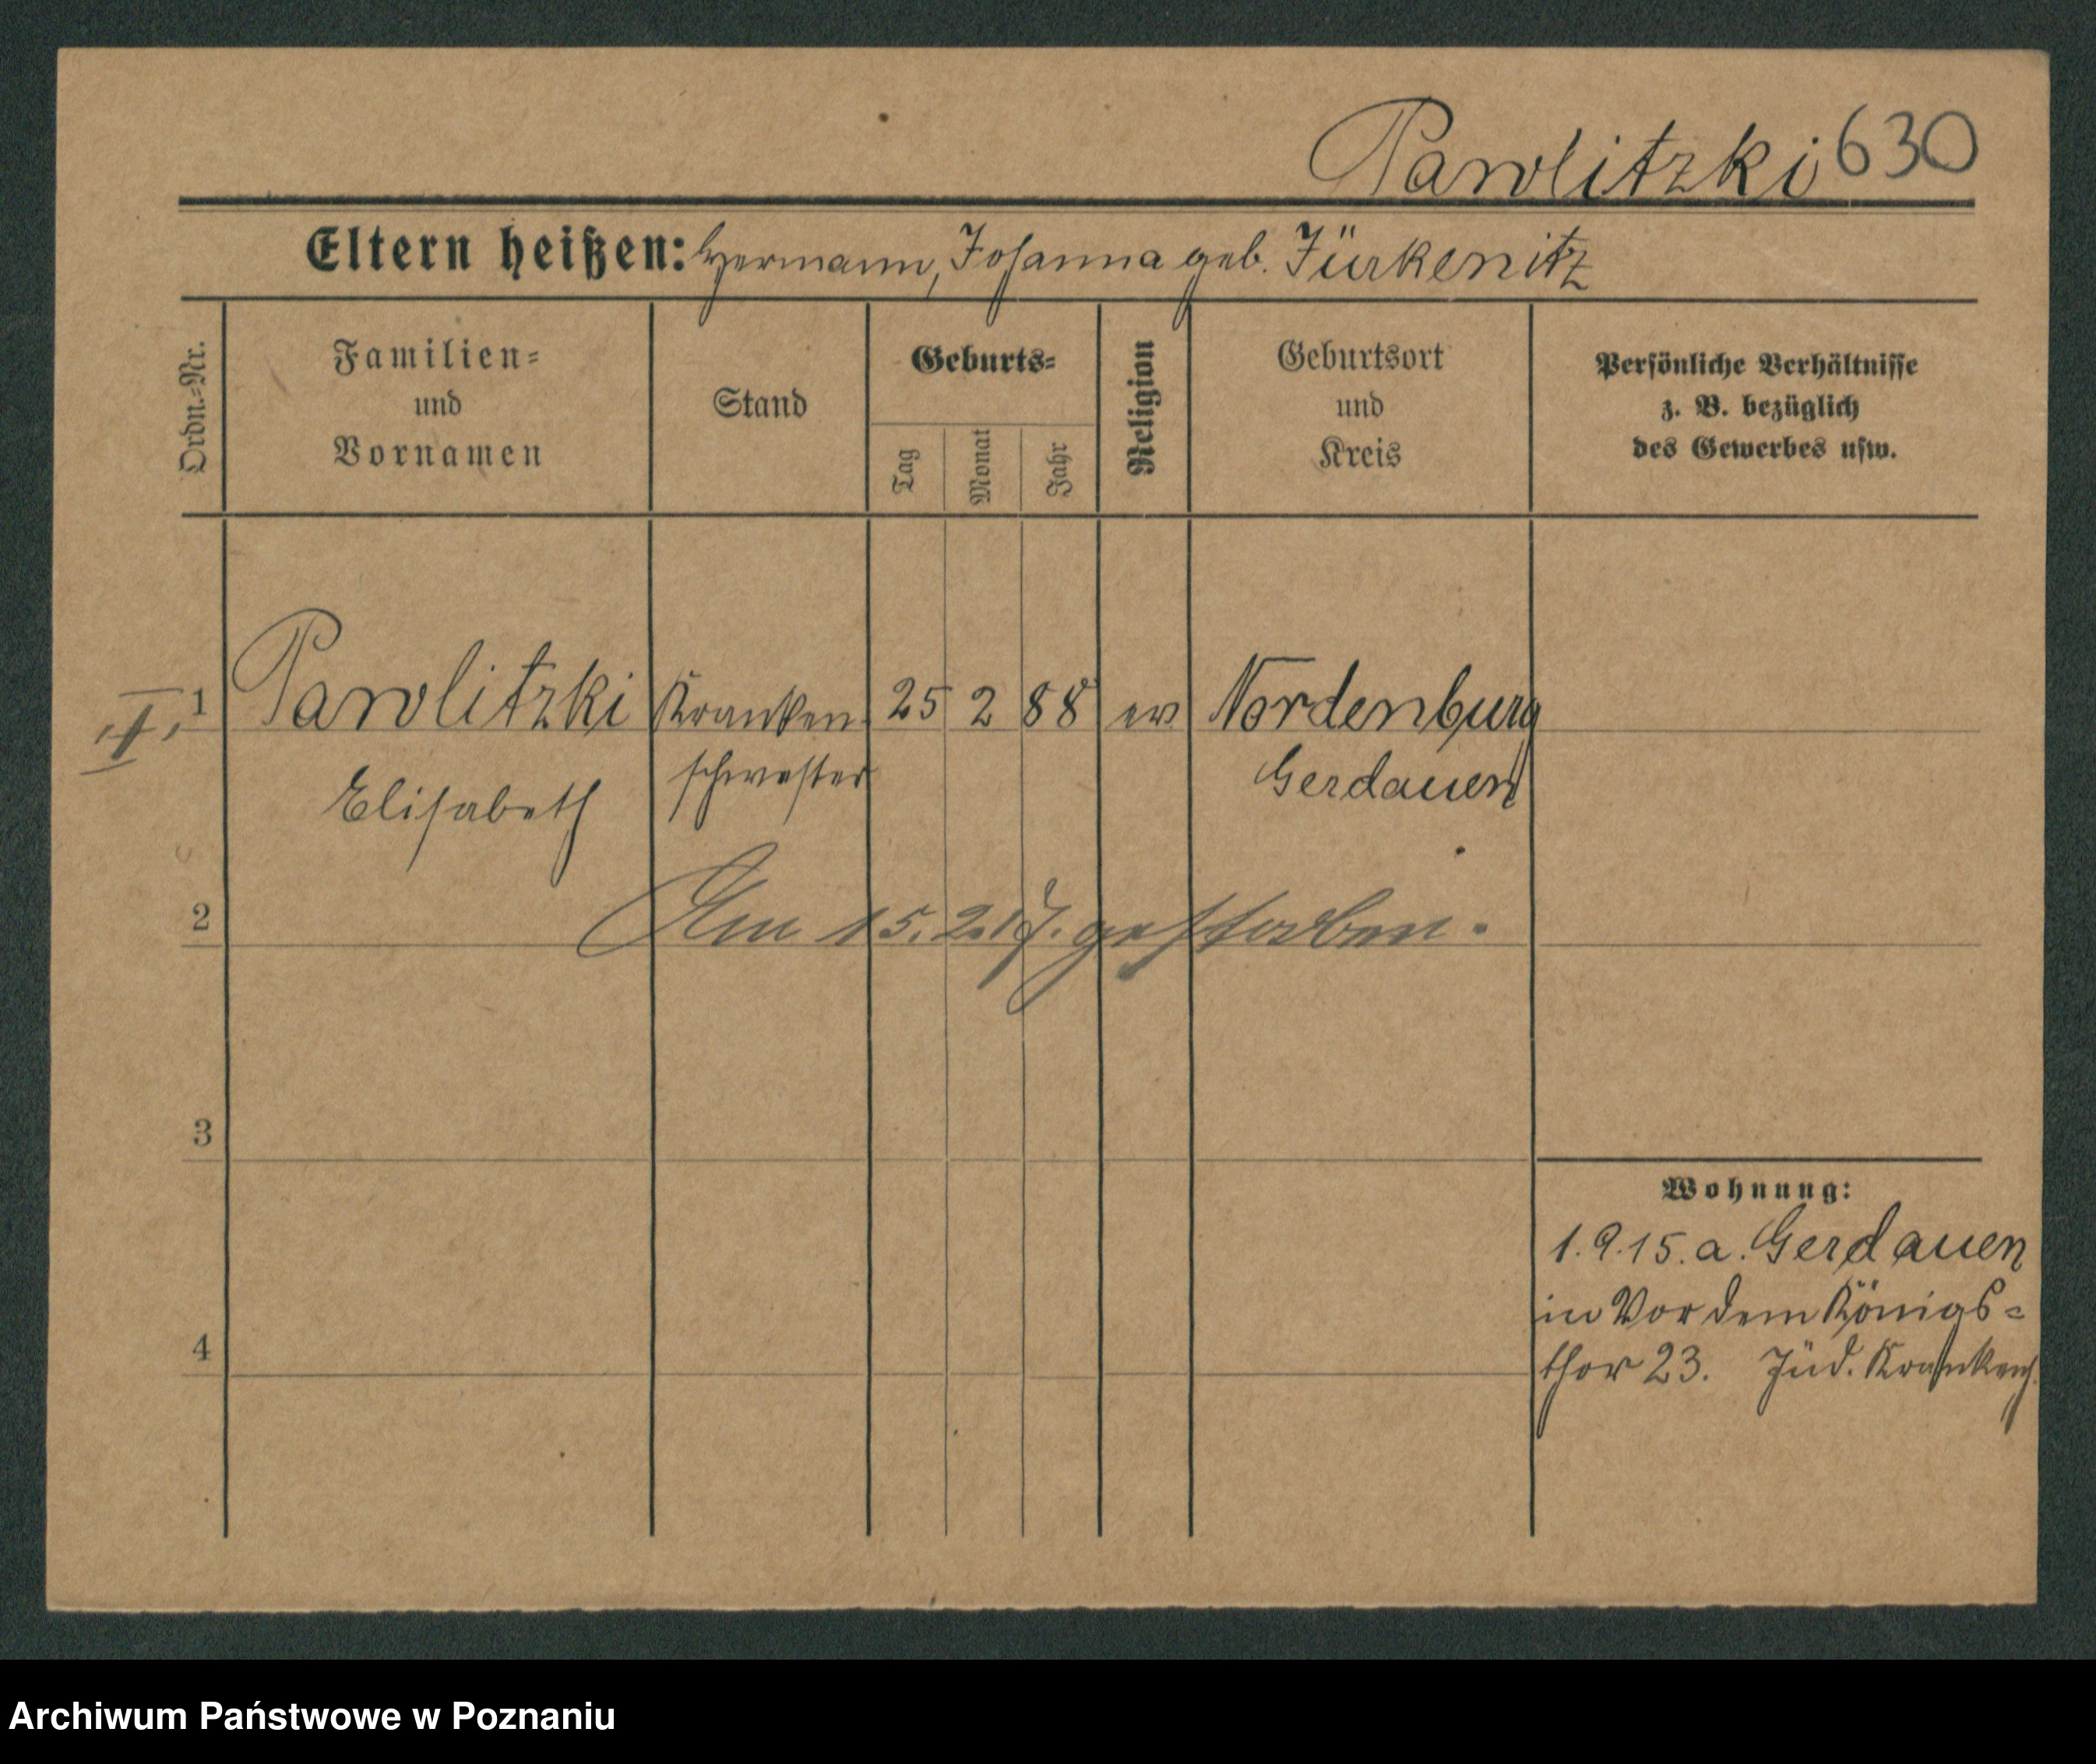 Pawlitzki 630
Eltern heißen: Hermann, Johanna geb. Jürkenitz
Ordn.=Nr.
Familien=
und
Vornamen
Stand
Geburts=
Tag
Monat
Jahr
Religion
Geburtsort
und
Kreis
Persönliche Verhältnisse
z. B. bezüglich
des Gewerbes usw.
1 Pawlitzki Kranken 25 2 88 ev Nordenburg
Elisabeth schwester Gerdauen
2 Am 15.2.17. gestorben.
3
4
Wohnung:
1.9.15. a. Gerdauen
in Vor dem Königs=
thor 23. Jüd. Krankenh.
Archiwum Państwowe w Poznaniu